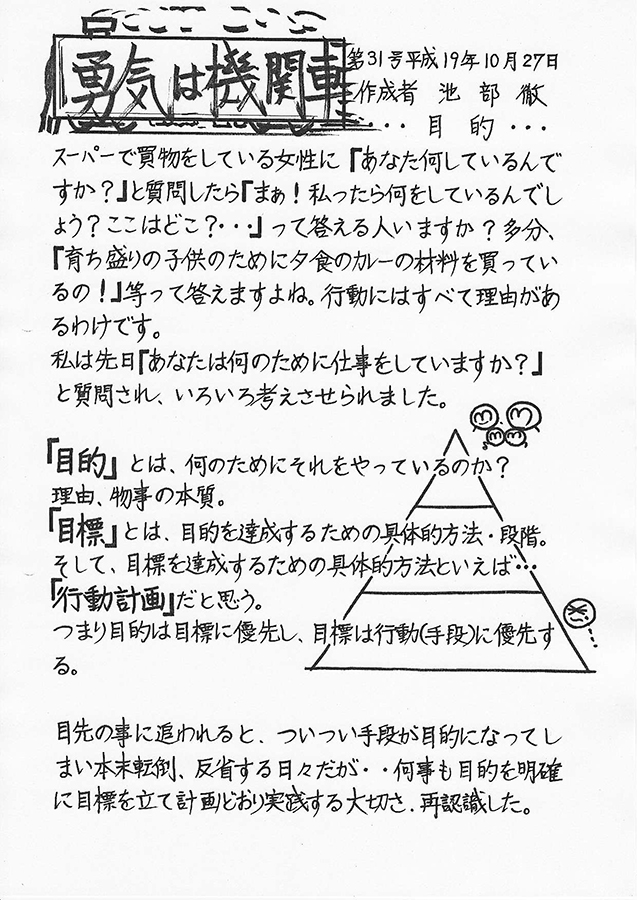 勇気は機関車
第31号平成19年10月27日
作成者 池部 徹
・・・目的・・・
スーパーで買物をしている女性に『あなた何しているんで
すか?』と質問したら『まぁ!私ったら何をしているんでし
ょう?ここはどこ?・・・』って答える人いますか?多分、
『育ち盛りの子供のために夕食のカレーの材料を買ってい
るの!』等って答えますよね。行動にはすべて理由があ
るわけです。
私は先日『あなたは何のために仕事をしていますか?』
と質問され、いろいろ考えさせられました。
「目的」とは、何のためにそれをやっているのか?
理由、物事の本質。
「目標」とは、目的を達成するための具体的方法・段階。
そして、目標を達成するための具体的方法といえば・・・
「行動計画」だと思う。
つまり目的は目標に優先し、目標は行動(手段)に優先す
る。
目先の事に追われると、ついつい手段が目的になってし
まい本末転倒、反省する日々だが・・何事も目的を明確
に目標を立て計画どおり実践する大切さ、再認識した。